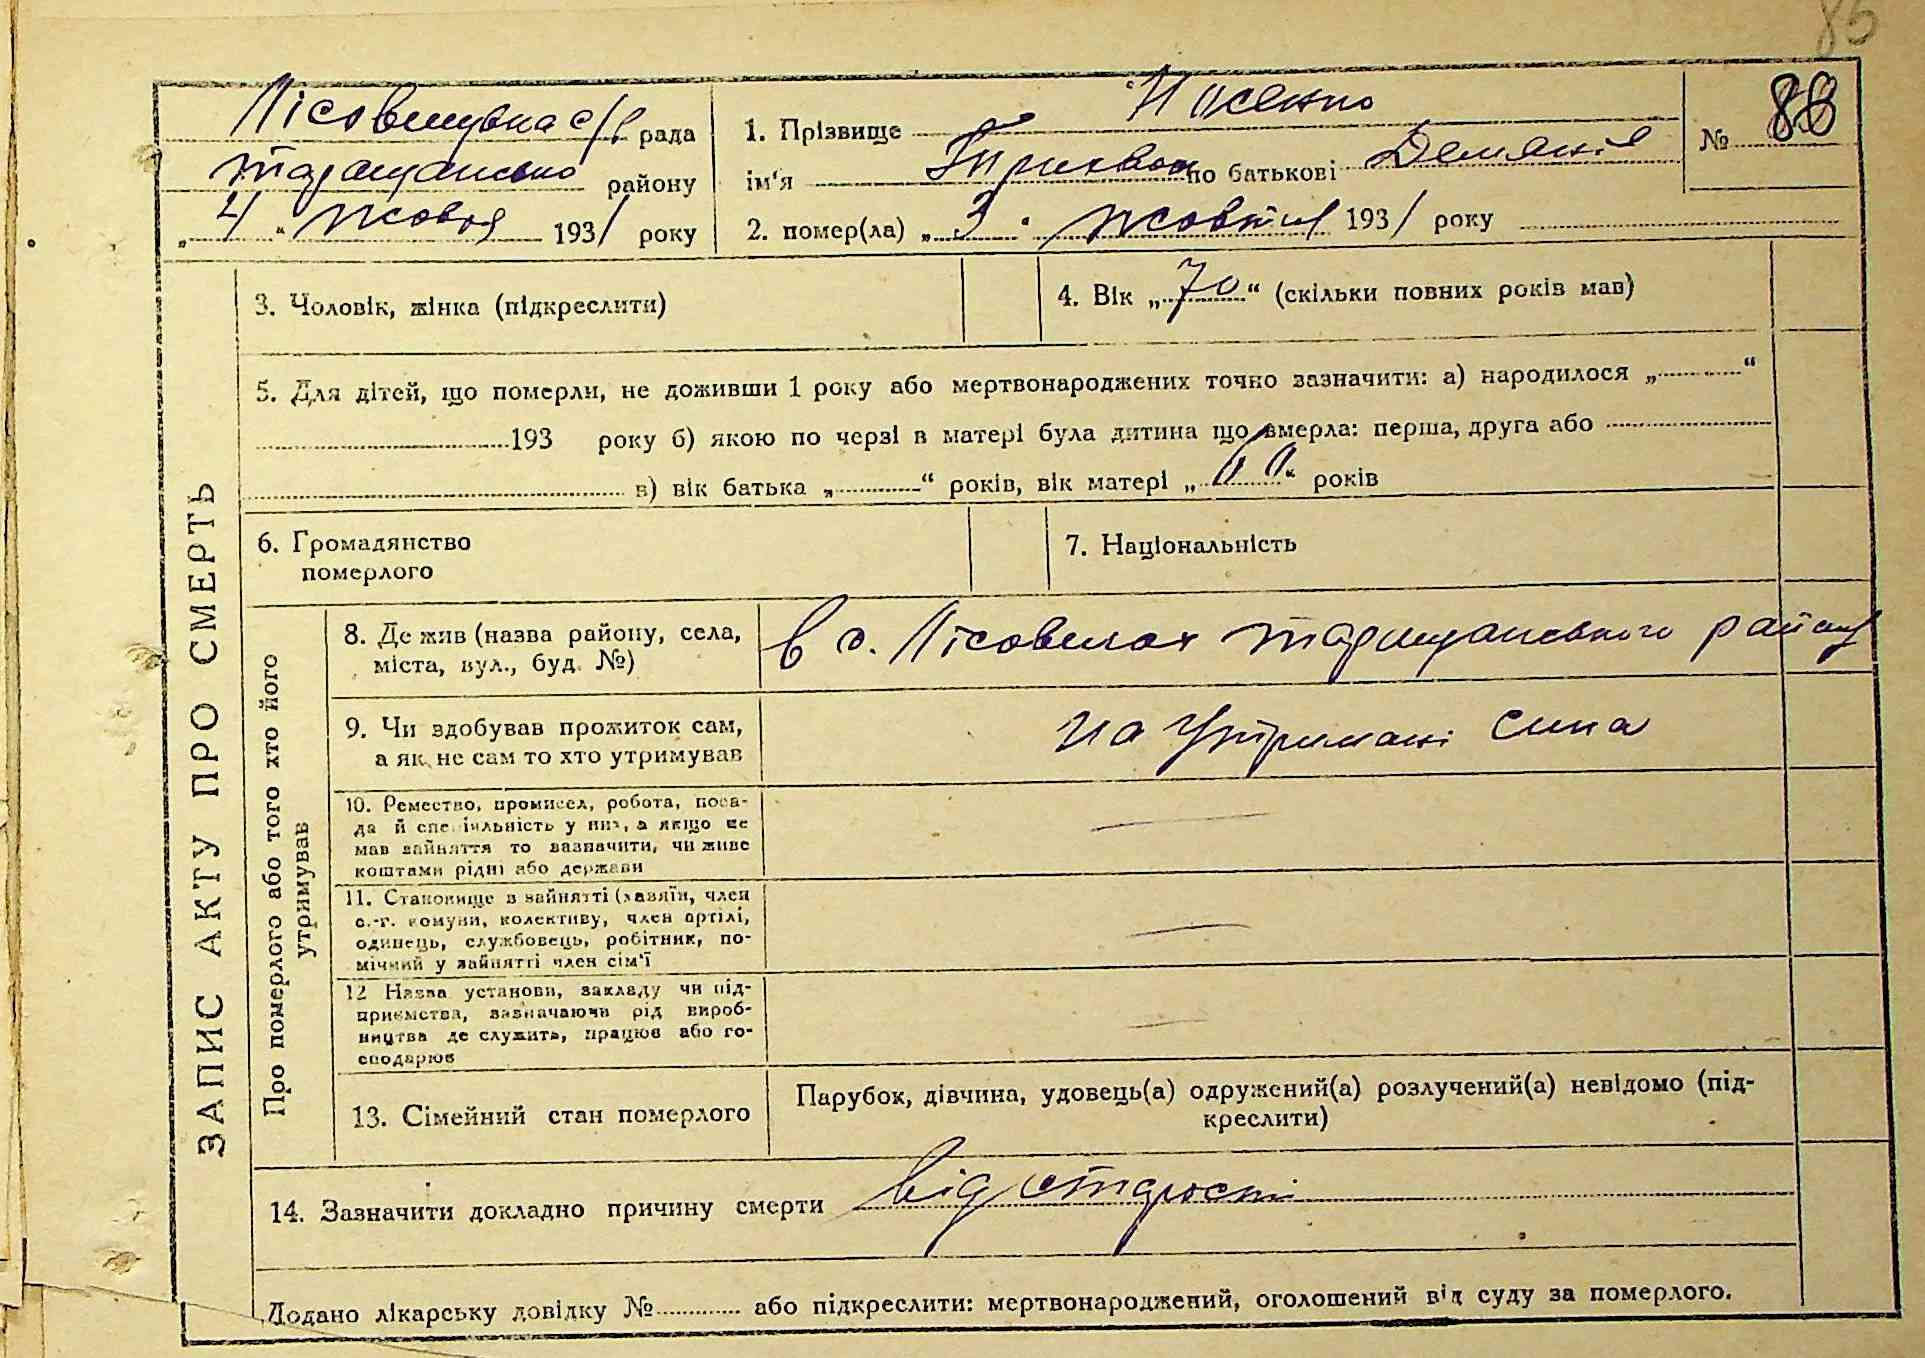 85
Лісовицька с/р рада
таращансько району
„4“ жовтя 1931 року
1. Прізвище Носенко
ім'я по батькові
2. помер(ла) „3“ жовтня 1931 року
№ 88
ЗАПИС АКТУ ПРО СМЕРТЬ
3. Чоловік, жінка (підкреслити)
4. Вік „70“ (скільки повних років мав)
5. Для дітей, що померли, не доживши 1 року або мертвонароджених точно зазначити: а) народилося „ “
193 року б) якою по черзі в матері була дитина що вмерла: перша, друга або
в) вік батька „ “ років, вік матері „ “ років
6. Громадянство
померлого
7. Національність
Про померлого або того хто його
утримував
8. Де жив (назва району, села,
міста, вул., буд. №)
в с. Лісовичах таращанського району
9. Чи здобував прожиток сам,
а як не сам то хто утримував
на утримані сина
10. Ремество, промисел, робота, поса-
да й спеціяльність у них, а якщо не
мав зайняття то зазначити, чи живе
коштами рідні або держави
11. Становище в зайнятті (хазяїн, член
с.-г. комуни, колективу, член артілі,
одинець, службовець, робітник, по-
мічний у зайнятті член сім'ї
12 Назва установи, закладу чи під-
приємства, зазначаючи рід вироб-
ництва де служить, працює або го-
сподарює
13. Сімейний стан померлого
Парубок, дівчина, удовець(а) одружений(а) розлучений(а) невідомо (під-
креслити)
14. Зазначити докладно причину смерти від старости
Додано лікарську довідку № або підкреслити: мертвонароджений, оголошений від суду за померлого.